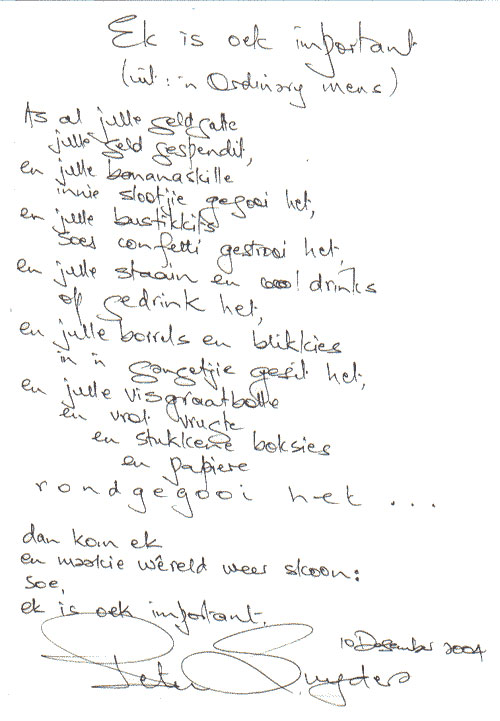 Ek is oek important
(uit: 'n Ordinary mens)
As al julle geldgatte
julle geld gespendit,
en julle bananaskille
innie slootjie gegooi het,
en julle bustikkits
soes confetti gestrooi het,
en julle staain en cool drinks
op gedrink het,
en julle borrels en blikkies
in 'n gangetjie gesit het,
en julle visgraatbotte
en vrot vrugte
en stukkene boksies
en papiere
rondgegooi het ...
dan kom ek
en maakie wêreld weer skoon:
soe,
ek is oek important.
10 Desember 2004
Peter Snyders